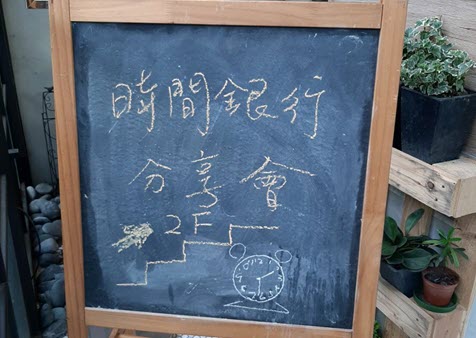 時間銀行
分享會
2F